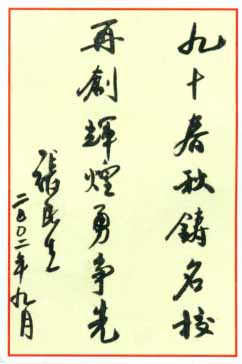 九十春秋鑄名校
再創輝煌勇争先
張民生
二〇〇二年九月